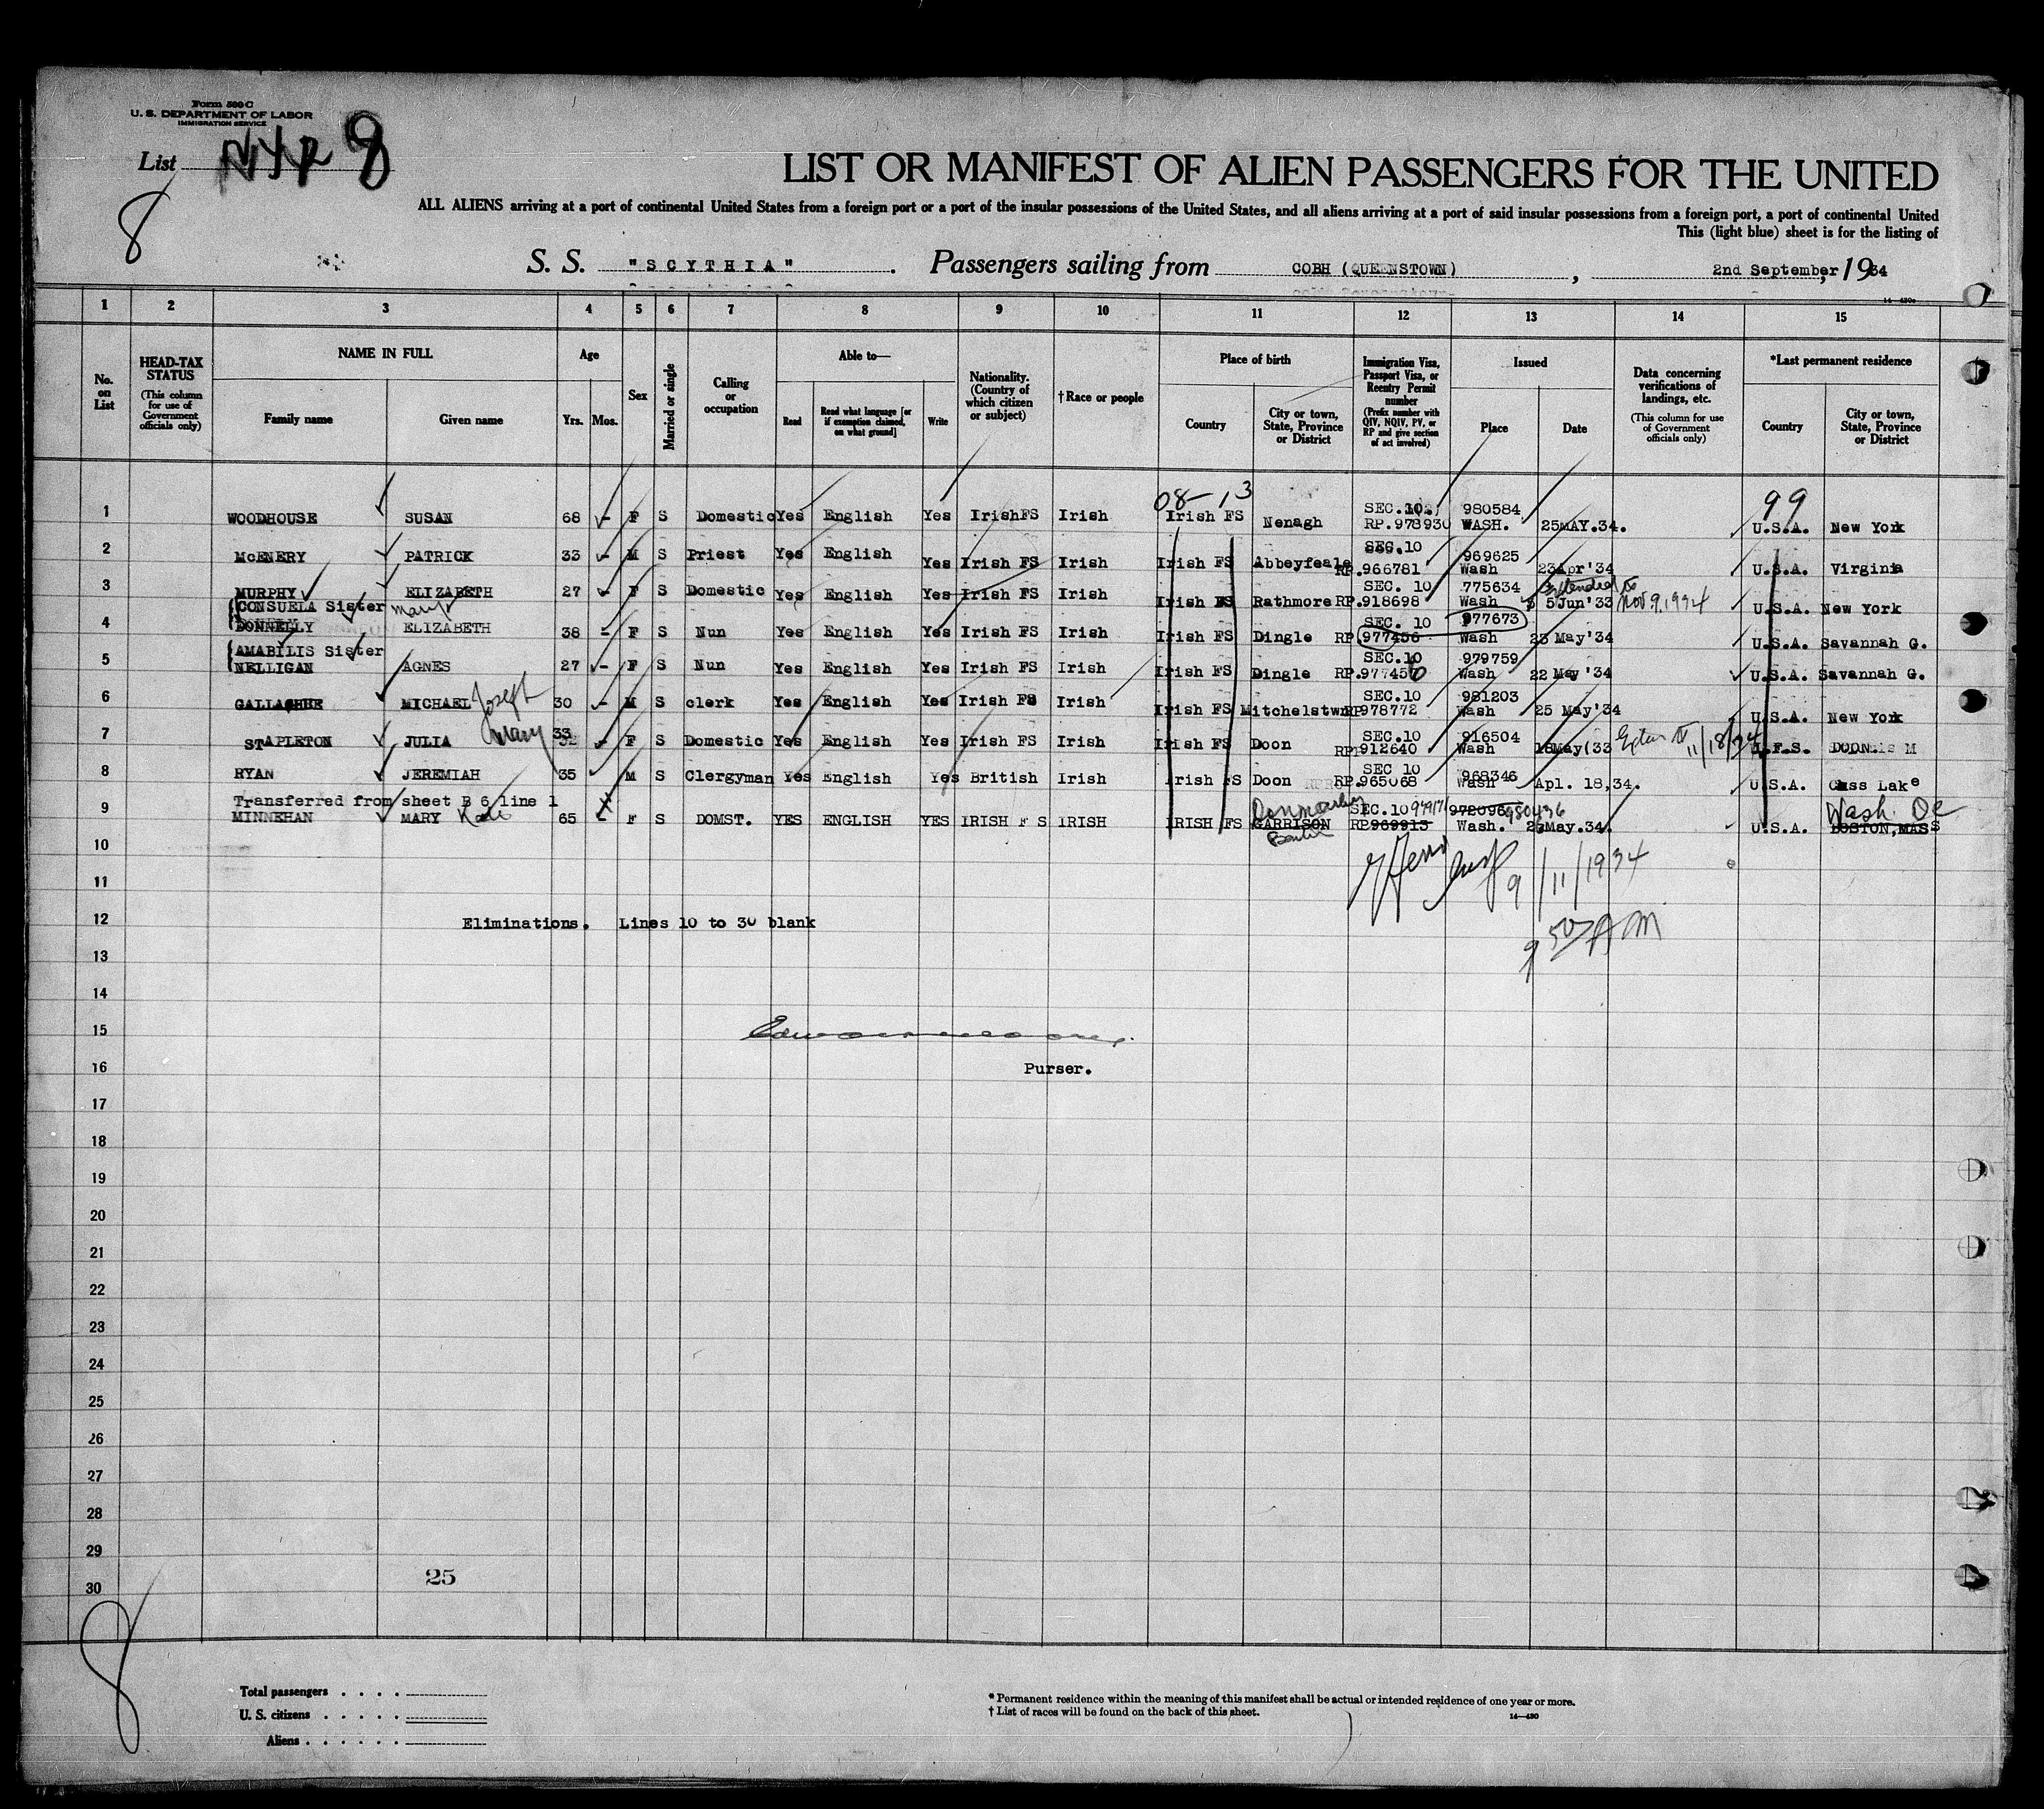 Form 500 C
U. S. DEPARTMENT OF LABOR
IMMIGRATION SERVICE
List NYP 8
8
LIST OR MANIFEST OF ALIEN PASSENGERS FOR THE UNITED
ALL ALIENS arriving at a port of continental United States from a foreign port or a port of the insular possessions of the United States, and all aliens arriving at a port of said insular possessions from a foreign port, a port of continental United
This (light blue) sheet is for the listing of
S. S. "SCYTHIA" . Passengers sailing from COBH (QUEENSTOWN) , 2nd September, 1934
1 2 3 4 5 6 7 8 9 10 11 12 13 14 15
No. on List
HEAD-TAX STATUS (This column for use of Government officials only)
NAME IN FULL Family name Given name
Age Yrs. Mos.
Sex
Married or single
Calling or occupation
Able to— Read Read what language [or if exemption claimed, on what ground] Write
Nationality. (Country of which citizen or subject)
†Race or people
Place of birth Country City or town, State, Province or District
Immigration Visa, Passport Visa, or Reentry Permit number (Prefix number with QIV, NQIV, PV, or RP and give section of act involved)
Issued Place Date
Data concerning verifications of landings, etc. (This column for use of Government officials only)
*Last permanent residence Country City or town, State, Province or District
08-13 99
1 WOODHOUSE SUSAN 68 - F S Domestic Yes English Yes IrishFS Irish Irish FS Nenagh SEC.10. RP.973930 980584 WASH. 25MAY.34. U.S.A. New York
2 McENERY PATRICK 33 - M S Priest Yes English Yes Irish FS Irish Irish FS Abbeyfeale SEC.10 RP.966781 969625 Wash 23Apr'34 U.S.A. Virginia
3 MURPHY ELIZABETH 27 - F S Domestic Yes English Yes Irish FS Irish Irish FS Rathmore SEC. 10 RP.918698 775634 Wash 5Jun'33 Extended to Nov.9.1934 U.S.A. New York
CONSUELA Sister Mary
4 DONNELLY ELIZABETH 38 - F S Nun Yes English Yes Irish FS Irish Irish FS Dingle SEC. 10 RP 977456 977673 Wash 23 May'34 U.S.A. Savannah G.
AMABILIS Sister
5 NELLIGAN AGNES 27 - F S Nun Yes English Yes Irish FS Irish Irish FS Dingle SEC.10 RP.977456 979759 Wash 22 May '34 U.S.A. Savannah G.
6 MICHAEL Joseph 30 - M S clerk Yes English Yes Irish FS Irish Irish FS Mitchelstwn SEC.10 RP978772 981203 Wash 25 May'34 U.S.A. New York
7 STAPLETON JULIA Mary 33 - F S Domestic Yes English Yes Irish FS Irish Irish FS Doon SEC.10 RP.912640 916504 Wash 18May(33 11/18/34 I.F.S. DOON
8 RYAN JEREMIAH 35 M S Clergyman Yes English Yes British Irish Irish FS Doon SEC 10 RP.965068 968346 Wash Apl. 18,34. U.S.A. Cass Lake
Transferred from sheet B 6 line 1
9 MINNEHAN MARY Kate 65 - F S DOMST. YES ENGLISH YES IRISH F S IRISH IRISH FS GARRISON SEC.10 RP969913 972096 980436 Wash. 25May.34. U.S.A. BOSTON,MASS Wash. DC
10
11 9/11/1934
12 Eliminations. Lines 10 to 30 blank 9 50 AM
13
14
15
16 Purser.
17
18
19
20
21
22
23
24
25
26
27
28
29
25
30
8
Total passengers . . . .
U. S. citizens . . . . .
Aliens . . . . . .
* Permanent residence within the meaning of this manifest shall be actual or intended residence of one year or more.
† List of races will be found on the back of this sheet.
14—430